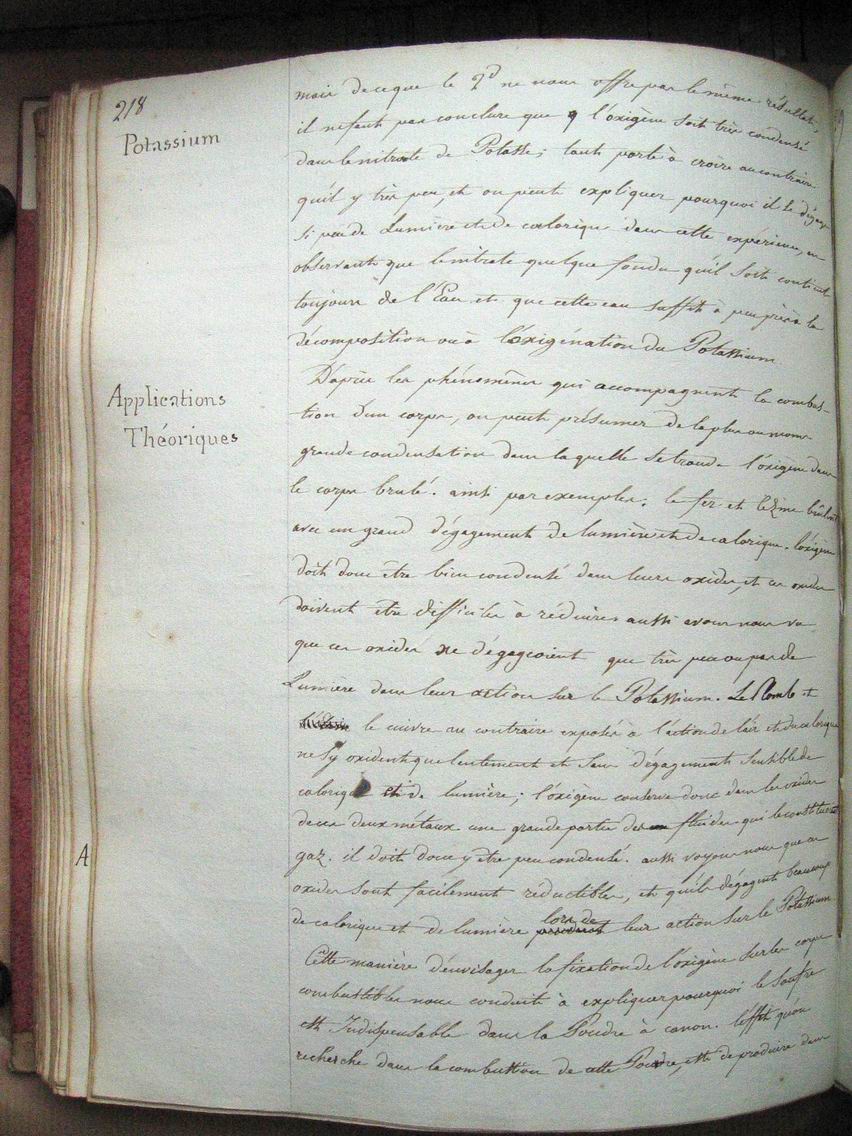 218
Potassium
mais de ce que le 2d ne nous offre pas le même résultat,
il ne faut pas conclure que l'oxigène soit très condensé
dans le nitrate de Potasse; tout porte à croire au contraire
qu'il y très peu, et on peut expliquer pourquoi il se dégage
si peu de Lumière et de calorique dans cette expérience, en
observant que le nitrate quelque fondu qu'il soit contient
toujours de l'Eau et que cette eau suffit à peu près à la
décomposition ou à l'oxigénation du Potassium
Applications
Théoriques
D'après les phénomènes qui accompagnent la combus-
tion d'un corps, on peut présumer de la plus ou moins
grande condensation dans laquelle se trouve l'oxigène dans
le corps brulé. ainsi par exemple, le fer et le Zinc brûlent
avec un grand dégagement de lumière et de calorique. l'oxigène
doit donc être bien condensé dans leurs oxides, et ces oxides
doivent être difficiles à réduire. aussi avons nous vu
que ces oxides ne dégageoient que très peu ou pas de
Lumière dans leur action sur le Potassium. Le Plomb et
le cuivre au contraire exposés à l'action de l'air et du calorique
ne s'y oxident que lentement et sans dégagement sensible de
calorique et de lumière; l'oxigène conserve donc dans les oxides
de ces deux métaux une grande partie des fluides qui le constituent
A
gaz. il doit donc y être peu condensé. aussi voyons nous que ces
oxides sont facilement réductibles, et qu'ils dégagent beaucoup
de calorique et de lumière lors de leur action sur le Potassium
Cette manière d'envisager la fixation de l'oxigène sur les corps
combustibles nous conduit à expliquer pourquoi le soufre
est Indispensable dans la Poudre à canon. l'effet qu'on
recherche dans la combustion de cette Poudre, est de produire dans